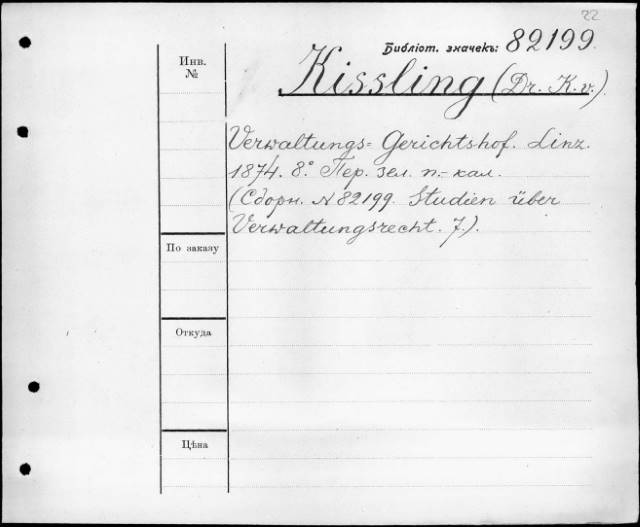 22
Библіот. значекъ: 82199.
Инв.
№
Kissling (Dr. K. v.).
Verwaltungs= Gerichtshof. Linz.
1874. 8° Пер. зел. п.-кал.
(Сборн. № 82199. Studien über
Verwaltungsrecht. 7.).
По заказу
Откуда
Цѣна